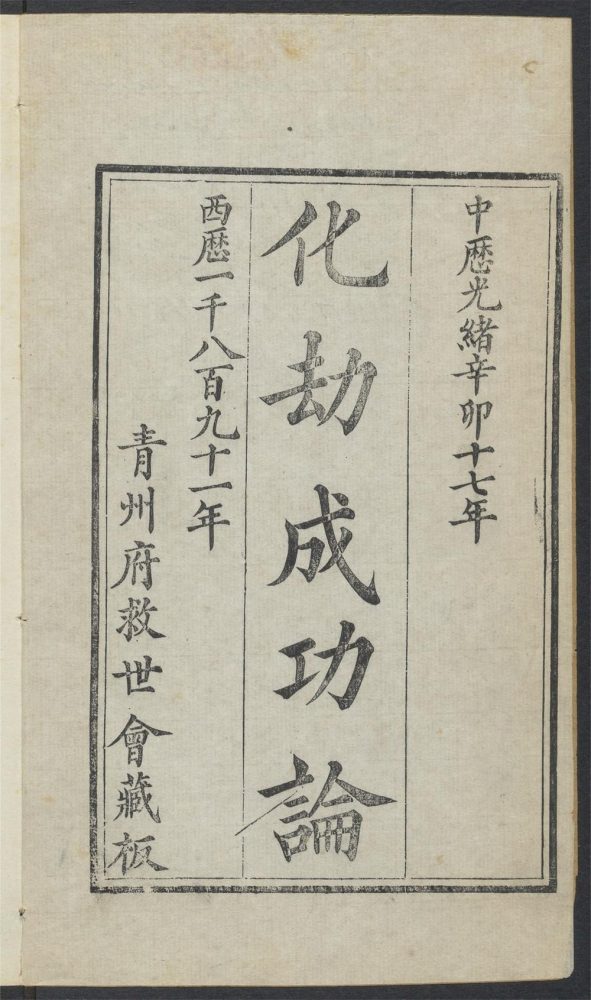 中歷光緒辛卯十七年
化劫成功論
西歷一千八百九十一年
青州府救世會藏板